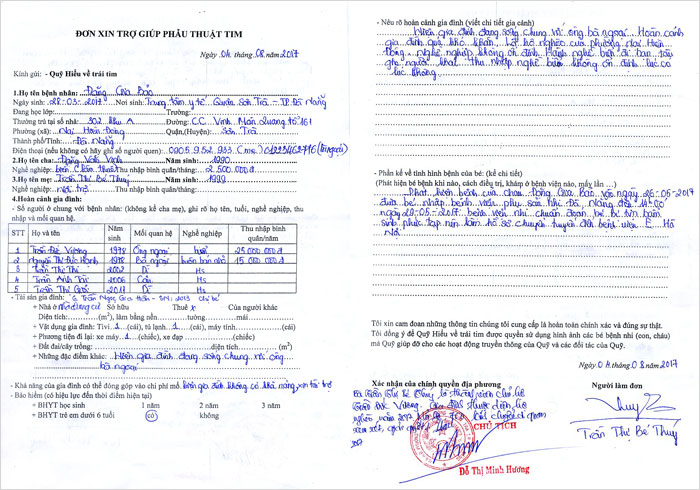 ĐƠN XIN TRỢ GIÚP PHẪU THUẬT TIM
Ngày 04 tháng 08 năm 2017
Kính gửi: - Quỹ Hiểu về trái tim
1.Họ tên bệnh nhân: Đặng Gia Bảo
Ngày sinh: 28-03-2017 Nơi sinh: Trung tâm y tế Quận Sơn Trà - TP Đà Nẵng
Đang học lớp: Trường:
Thường trú tại số nhà: 302 khu A Đường: CC Vịnh Mân Quang tổ 161
Phường (xã): Nại Hiên Đông Quận,(Huyện): Sơn Trà
Thành phố/Tỉnh: Đà Nẵng
Điện thoại (nếu không có hãy ghi số người quen): 0905.952.933 (mẹ)
2.Họ tên cha: Đặng Văn Vinh Năm sinh: 1990
Nghề nghiệp: Thu nhập bình quân/tháng: 2.500.000đ
3.Họ tên mẹ: Trần Thị Bé Thuy Năm sinh: 1999
Nghề nghiệp: nội trợ Thu nhập bình quân/tháng:
4.Hoàn cảnh gia đình:
- Số người ở chung với bệnh nhân: (không kể cha mẹ), ghi rõ họ tên, tuổi, nghề nghiệp, thu
nhập và mối quan hệ.
STT Họ và tên Năm sinh Mối quan hệ Nghề nghiệp Thu nhập bình quân/năm
1 Trần Đức Vương 1978 Ông ngoại 25 000 000đ
2 Nguyễn Thị Đức Hạnh 1978 Bà ngoại 15 000 000đ
3 Trần Thị 2002 Dì Hs
4 Trần Anh Tài 2006 Cậu Hs
5 Trần Thị 2011 Dì Hs
- Tài sản gia đình:
+ Nhà ở Sở hữu Thuê x Của người khác
Diện tích: (m²), làm bằng nền: tường: mái:
+ Vật dụng gia đình: Tivi 1 (cái), tủ lạnh 1 (cái), máy giặt (cái)
+ Phương tiện đi lại: xe máy 1 (chiếc), xe đạp (chiếc)
+ Đất đai/cây trồng: diện tích (m²)
+ Những đặc điểm khác: Hiện gia đình đang sống chung với ông
bà ngoại
- Khả năng của gia đình có thể đóng góp vào chi phí mổ: hiện gia đình không có khả năng, xin tài trợ
- Bảo hiểm (có hiệu lực đến thời điểm hiện tại)
+ BHYT học sinh 1 năm 2 năm 3 năm
+ BHYT trẻ em dưới 6 tuổi có không
- Nêu rõ hoàn cảnh gia đình (viết chi tiết gia cảnh)
Hiện gia đình đang sống chung với ông bà ngoại. Hoàn cảnh
gia đình quá khó khăn, là hộ nghèo của phường Nại Hiên
Đông. Nghề nghiệp không ổn định
thu nhập nghề biển không ổn định lúc có
lúc không.
- Phần kể về tình hình bệnh của bé: (kể chi tiết)
(Phát hiện bé bệnh khi nào, cách điều trị, khám ở bệnh viện nào, mấy lần …)
Phát hiện bệnh của cháu Đặng Gia Bảo vào ngày 26-05-2017
đưa bé nhập bệnh viện phụ sản nhi Đà Nẵng
ngày 29.05-2017 bệnh viện nhi chuẩn đoán bé bị tim bẩm
sinh phức tạp nên làm hồ sơ chuyển tuyến đến bệnh viện E Hà
Nội
Tôi xin cam đoan những thông tin chúng tôi cung cấp là hoàn toàn chính xác và đúng sự thật.
Tôi đồng ý để Quỹ Hiểu về trái tim được quyền sử dụng hình ảnh các bé bệnh nhi (con, cháu)
mà Quỹ giúp đỡ cho các hoạt động truyền thông của Quỹ và các đối tác của Quỹ.
Ngày 04 tháng 08 năm 2017
Xác nhận của chính quyền địa phương
Người làm đơn
Bà Trần Thị Bé Thuy là thành viên chủ hộ
Trần Đức Vương. Gia đình thuộc diện hộ
nghèo
CHỦ TỊCH
Đỗ Thị Minh Hương
Thuy
Trần Thị Bé Thuy